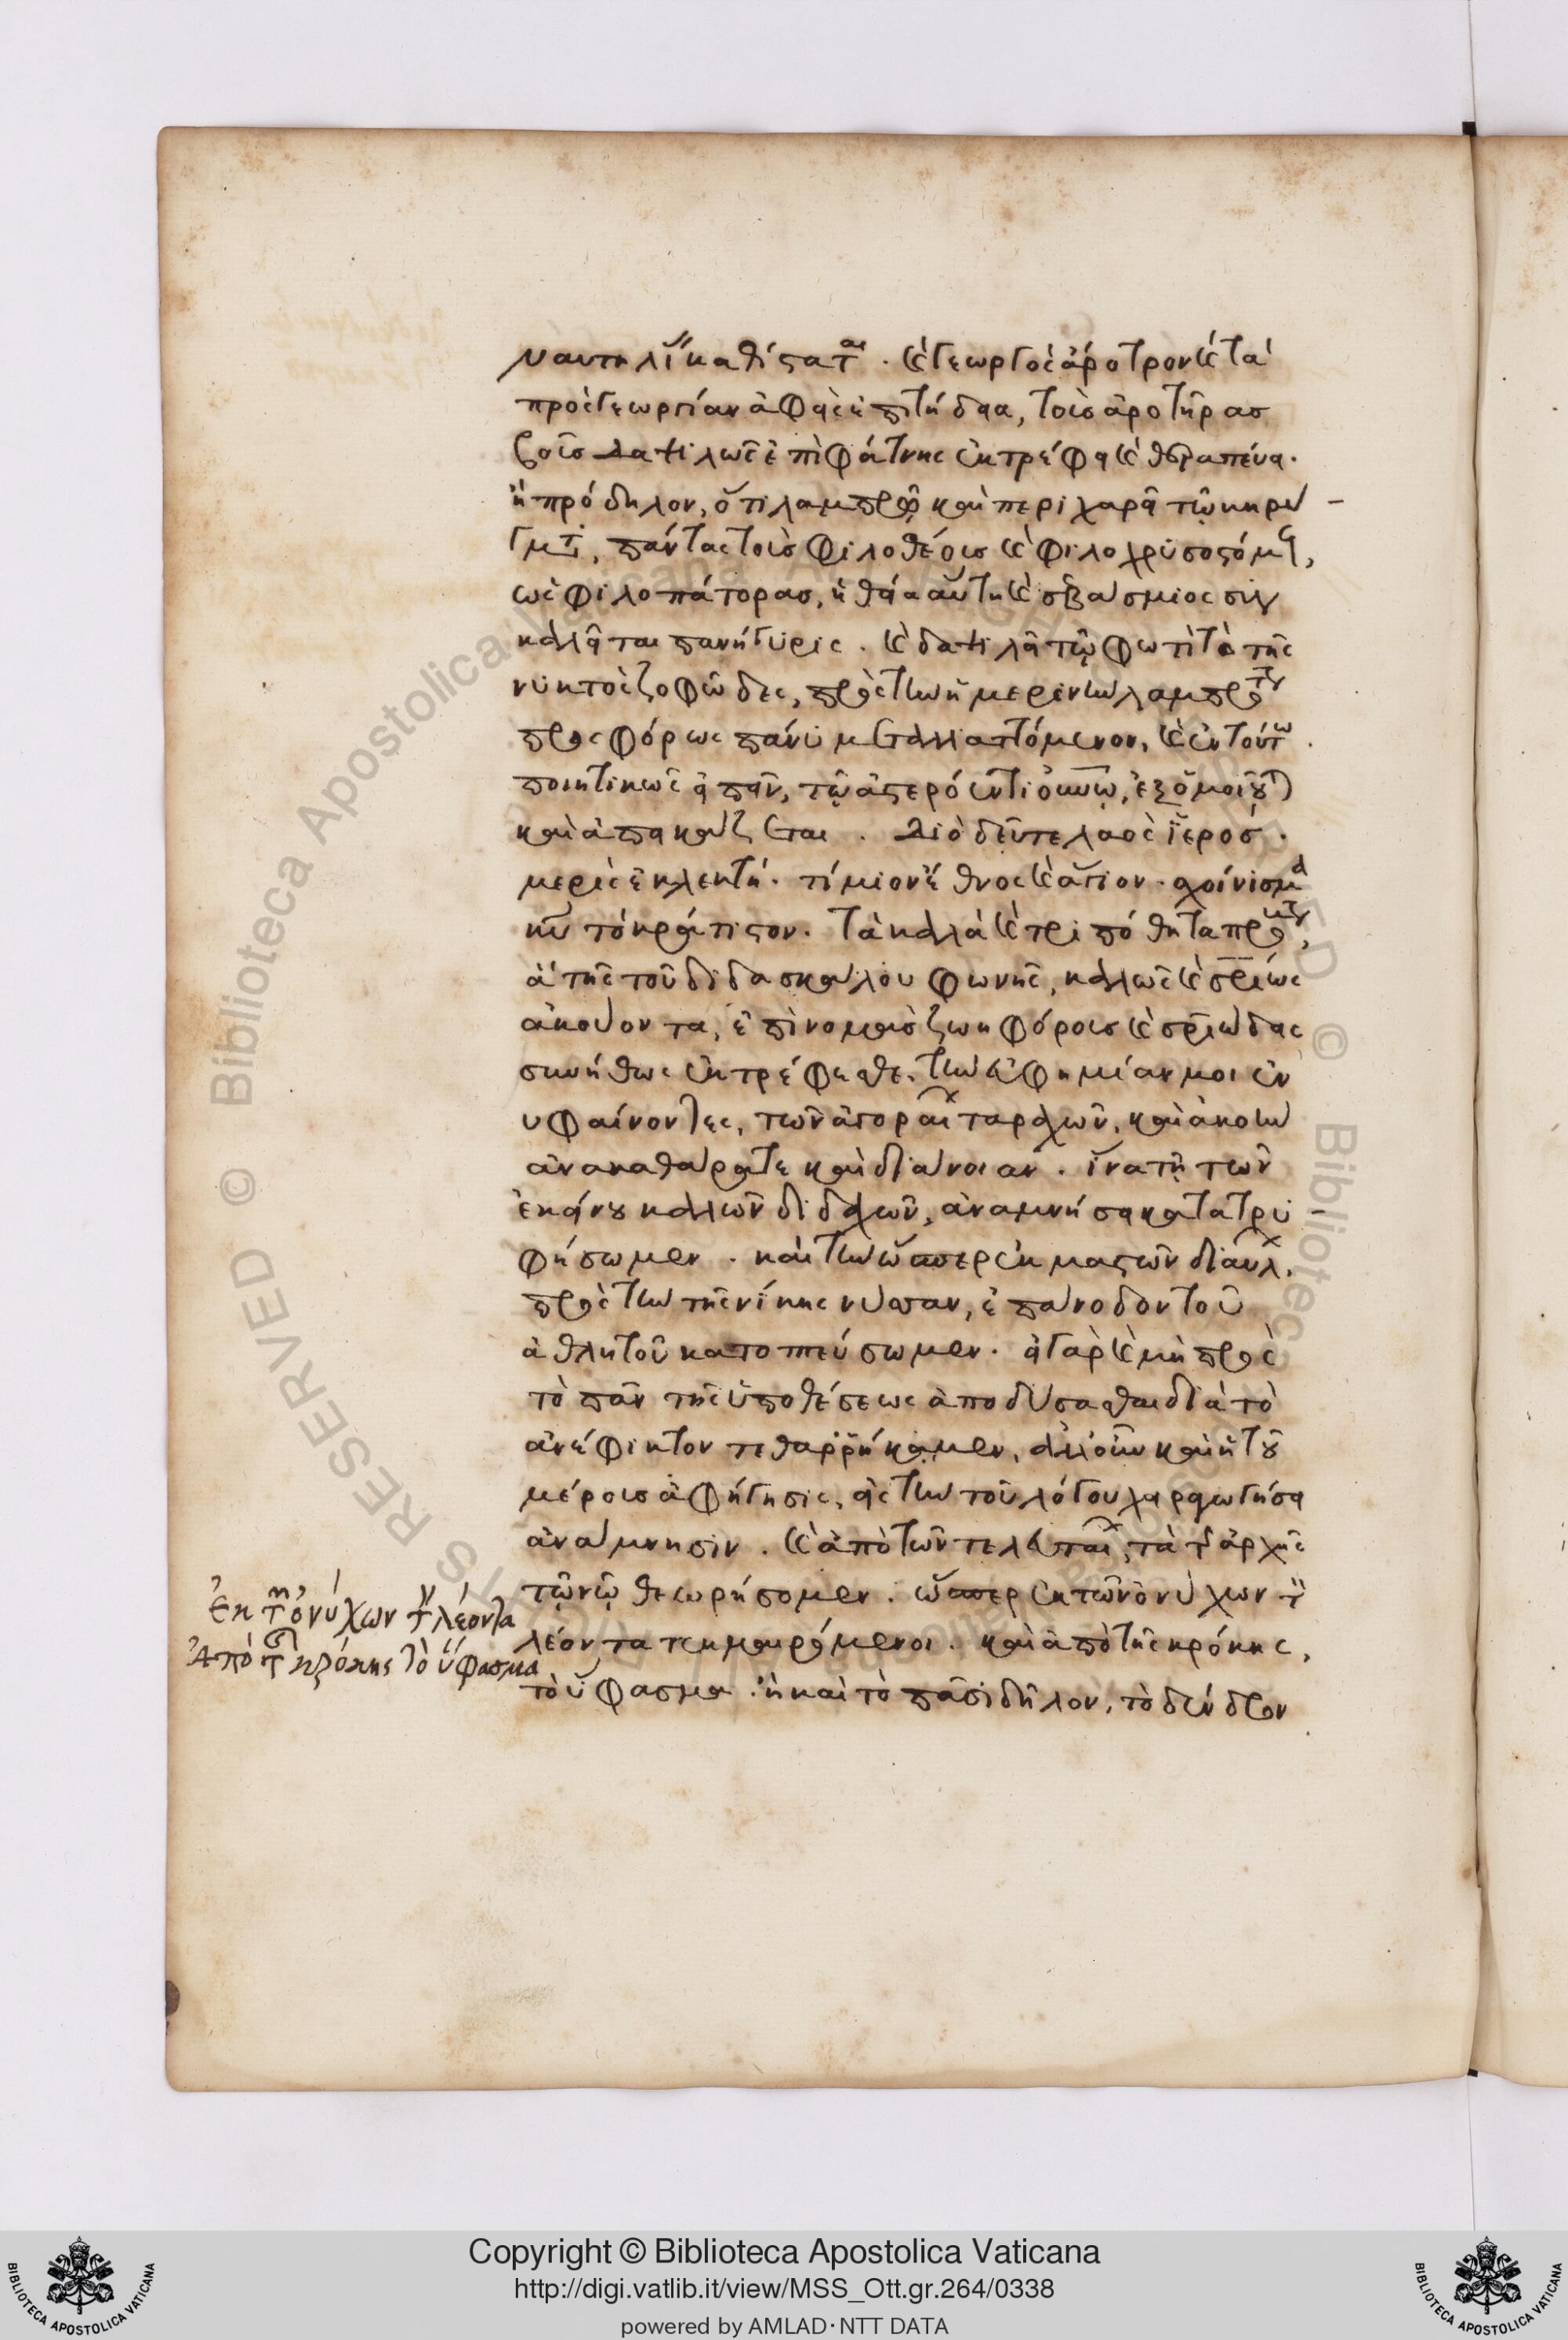 ναυτηλί καθίσταται. καὶ γεωργὸς ἄροτρον καὶ τὰ
πρὸς γεωργίαν ἀφεὶς ἐπιτήδεια, τοῖς ἀροτῆρας
βοῦς δαψιλῶς ἐπὶ φάτνης ἐκτρέφει καὶ θεραπεύει.
ἢ πρόδηλον, ὅτι λαμπρῷ καὶ περιχαρεῖ τῷ κηρύ
γματι, πάντας τοὺς φιλοθέοις καὶ φιλοχρυσοστόμους,
ὡς φιλοπάτορας, ἡ θεία αὕτη καὶ σεβάσμιος συγ
καλεῖται πανήγυρις. καὶ δαψιλεῖ τῷ φωτὶ τὸ τῆς
νυκτὸς ζοφῶδες, πρὸς τὴν ἡμερινὴν λαμπρότητα
προσφόρως πάνυ μεταλλαττόμενον, καὶ ἐν τούτῳ
ποιητικῶς εἰπεῖν, τῷ ἀστερόεντι οὐρανῷ, ἐξομοιοῦται
καὶ ἀπεικάζεται. Διὸ δεῦτε λαὸς ἱερός.
μερὶς ἐκλεκτή. τίμιον ἔθνος καὶ ἅγιον. σχοίνισμα
κυρίου τὸ κράτιστον. τὰ καλὰ καὶ τριπόθητα πρόβατα,
ἃ τῆς τοῦ διδασκάλου φωνῆς, καλῶς καὶ σωτηρίως
ἀκούοντα, ἐπὶ νομαῖς ζωηφόροις καὶ σωτηριώδεσι
συνήθως ἐκτρέφεσθε, τὴν εὐφημίαν μοι ἐν
υφαίνοντες, τῶν ἀγοραίων ταραχῶν, καὶ ἀκοὴν
ἀνακαθάρατε καὶ διάνοιαν. ἵνα τῇ τῶν
ἐκείνου καλῶν διδαχῶν, ἀναμνήσει κατατρυ
φήσωμεν. καὶ τὴν ὥσπερ ἐκ μαστῶν δίαυλ,
πρὸς τὴν τῆς νίκης νύσσαν, ἐπάνοδον τοῦ
ἀθλητοῦ κατοπτεύσωμεν. εἰ γὰρ καὶ μὴ πρὸς
τὸ πᾶν τῆς ὑποθέσεως ἀποδύσασθαι διὰ τὸ
ἀνέφικτον τεθαρρήκαμεν, ἀλλ' οὖν καὶ ἡ τοῦ
μέρους ἀφήγησις, εἰς τὴν τοῦ λόγου χειραγωγήσει
ἀνάμνησιν. καὶ ἀπὸ τῶν τελευταίων, τὰ τῆς ἀρχῆς
τῷ νῷ θεωρήσομεν. ὥσπερ ἐκ τῶν ὀνύχων τὸν
λέοντα τεκμαιρόμενοι. καὶ ἀπὸ τῆς κρόκης,
τὸ ὕφασμα. ἢ καὶ τὸ πᾶσι δῆλον, τὸ δένδρον
Ἐκ τῶν ὀνύχων τὸν λέοντα
Ἀπὸ τῆς κρόκης τὸ ὕφασμα
Copyright © Biblioteca Apostolica Vaticana
http://digi.vatlib.it/view/MSS_Ott.gr.264/0338
powered by AMLAD·NTT DATA